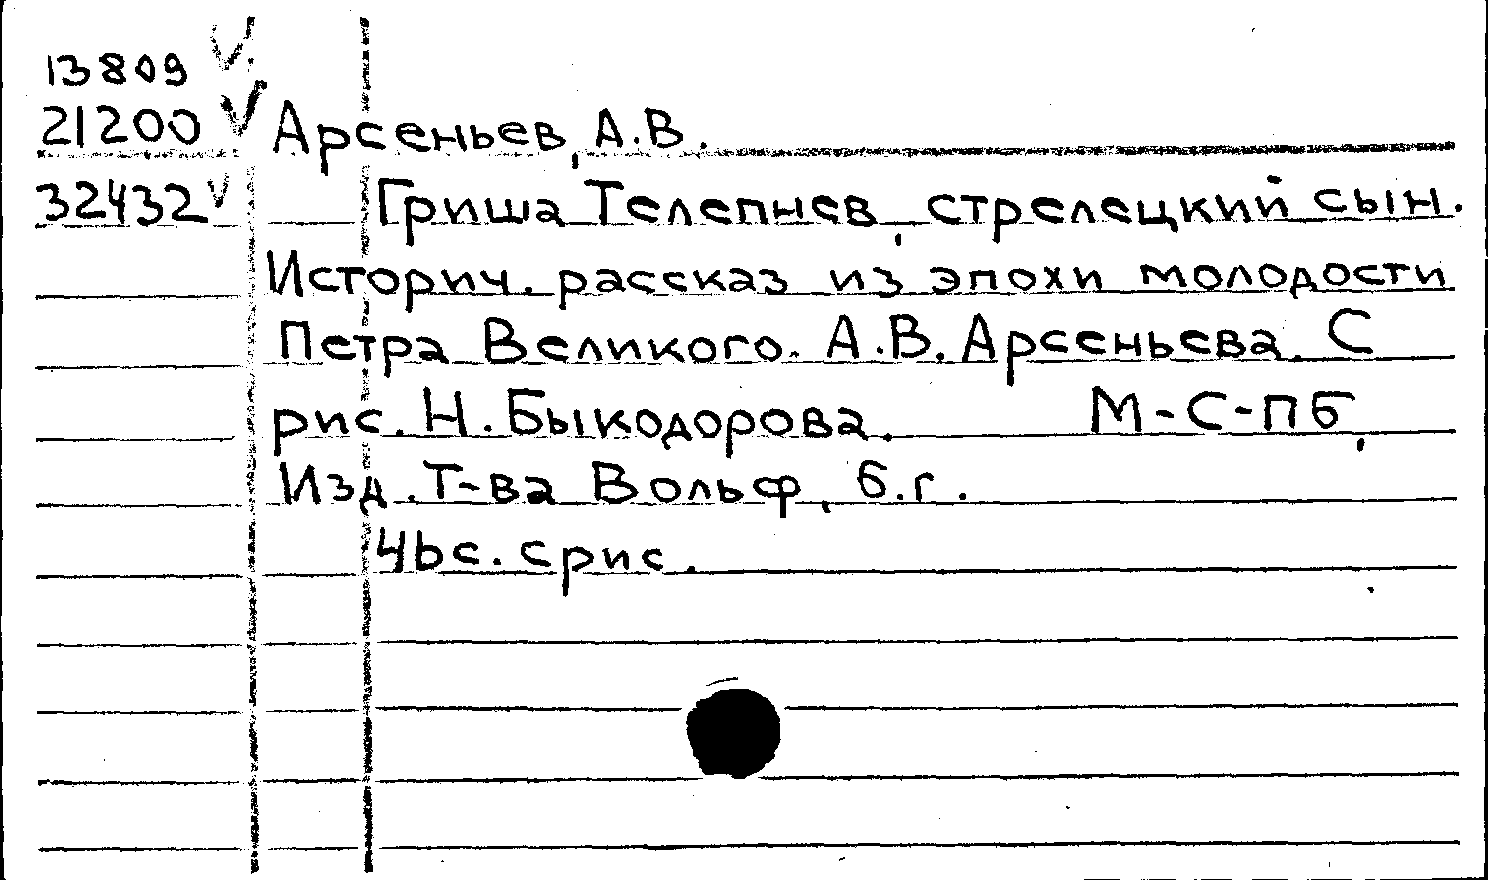 13809 V
21200 V Арсеньев, А.В.
32432 V Гриша Телепнев, стрелецкий сын.
Историч. рассказ из эпохи молодости
Петра Великого. А.В. Арсеньева. С
рис. Н. Быкодорова. М-С-ПБ,
Изд. Т-ва Вольф, б.г.
4bс. срис.